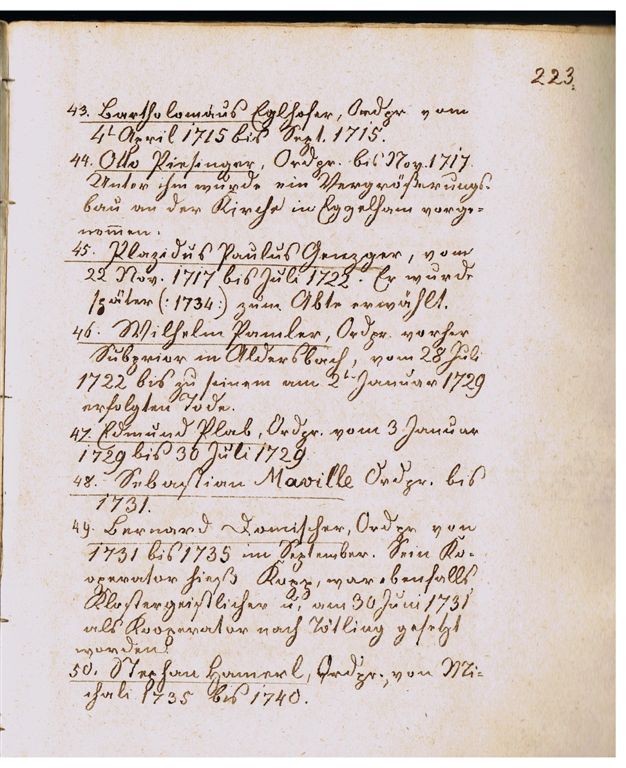 223.
43. Bartholomäus Eglhofer, Ordpr. vom
4t April 1715 bis Sept. 1715.
44. Otto Piesinger, Ordpr. bis Nov. 1717.
Unter ihm wurde ein Vergrößerungs-
bau an der Kirche in Eggelham vorge-
nom̅en.
45. Plazidus Paulus Genzger, vom
22 Nov. 1717 bis Juli 1722. Er wurde
später (:1734:) zum Abte erwählt.
46. Wilhelm Pamler, Ordpr. vorher
Subprior in Aldersbach, vom 28 Juli
1722 bis zu seinem am 2t Januar 1729
erfolgten Tode.
47. Edmund Plab, Ordpr. vom 3 Januar
1729 bis 30 Juli 1729
48. Sebastian Maville Ordpr. bis
1731.
49. Bernard Domischer, Ordpr von
1731 bis 1735 im September. Sein Ko-
operator hieß Kopp, war ebenfalls
Klostergeistlicher u, am 30 Juni 1731
als Kooperator nach Tötling gesetzt
worden.
50. Stephan Hamerl, Ordpr., von Mi-
chali 1735 bis 1740.